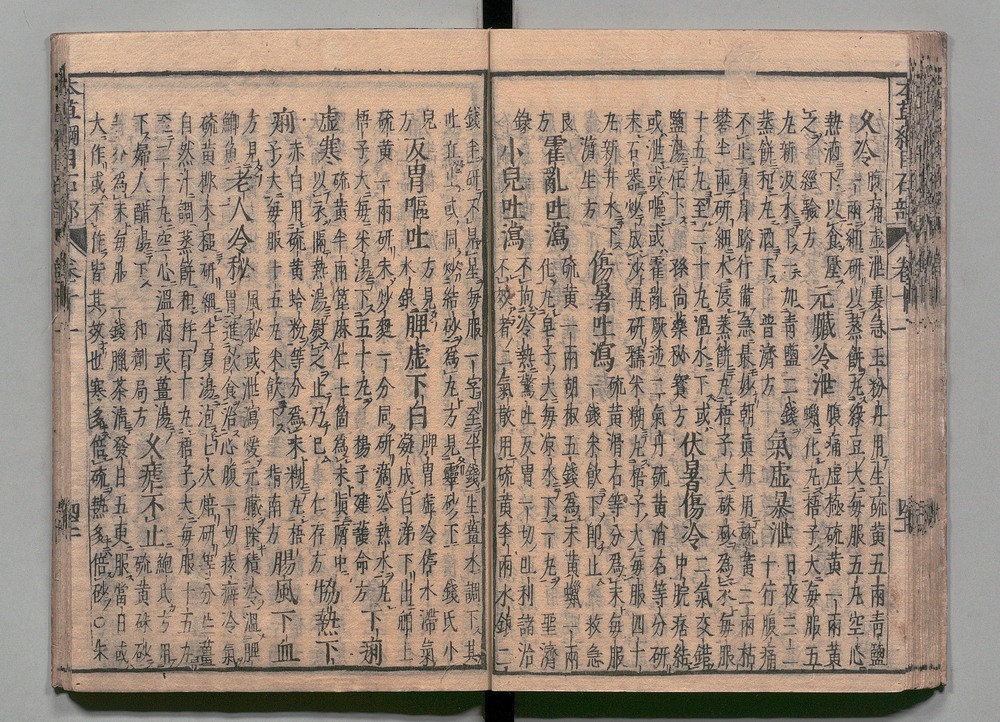 久冷 腹痛虚泄裏急玉粉丹用生硫黄五兩青鹽
一兩細研以蒸餠丸緑豆大毎服五丸空心
熱酒下以食壓之經驗方 元臟冷泄 腹痛虚極硫黄一兩黄
蠟化丸梧子大毎服五
丸新汲水下一加青鹽二錢蒸餠和丸酒下普濟方 氣虚暴泄 日夜三二十行腹痛
不止夏月路行備急最妙朝眞丹用硫黄二兩枯
礬半兩研細水浸蒸餠丸梧子大硃砂爲衣毎服
十五丸至二十丸温水下或鹽湯任下孫尚藥秘寶方 伏暑傷冷 二氣交錯中脘痞結
或泄或嘔或霍亂厥逆二氣丹硫黄消石等分研
末石器炒成沙再研糯米糊丸梧子大毎服四十
丸新井水下濟生方 傷暑吐瀉 硫黄滑石等分爲末毎服
一錢米飮下卽止救急良方
霍亂吐瀉 硫黄一兩胡椒五錢爲末黄蠟一兩
化丸皂子大毎凉水下一丸聖濟錄
小兒吐瀉 不拘冷熱驚吐反胃一切吐利諸治
不效者二氣散用硫黄半兩水銀二
錢半研不見星毎服一字至半錢生薑水調下其
吐立止或同炒結砂爲丸方見靈砂下錢氏小兒方
反胃嘔吐 方見水銀 脾虚下白 脾胃虚冷停水滯氣
凝成白涕下出舶上
硫黄一兩研末炒麪一分同研滴冷熱水丸
梧子大毎米湯下五十丸楊子建護命方 下痢
虚寒 硫黄半兩蓖麻仁七箇爲末塡臍中
以衣隔熱湯熨之止乃已仁存方 協熱下
痢 赤白用硫黄蛤粉等分爲末糊丸梧
子大毎服十五丸米飮下指南方 腸風下血
方見鯽魚 老人冷秘 風秘或泄瀉暖元臟除積冷温脾
胃進飮食治心腹一切痃癖冷氣
硫黄柳木槌研細半夏湯泡七次焙研等分生薑
自然汁調蒸餠和杵百十丸梧子大毎服十五丸
至二十丸空心温酒或薑湯下婦人醋湯下和劑局方 久瘧不止 鮑氏方用
硫黄硃砂
等分爲末毎服二錢臘茶淸發日五更服當日或
大作或不作皆其效也寒多倍硫熱多倍砂○朱
本草綱目石部 卷十一